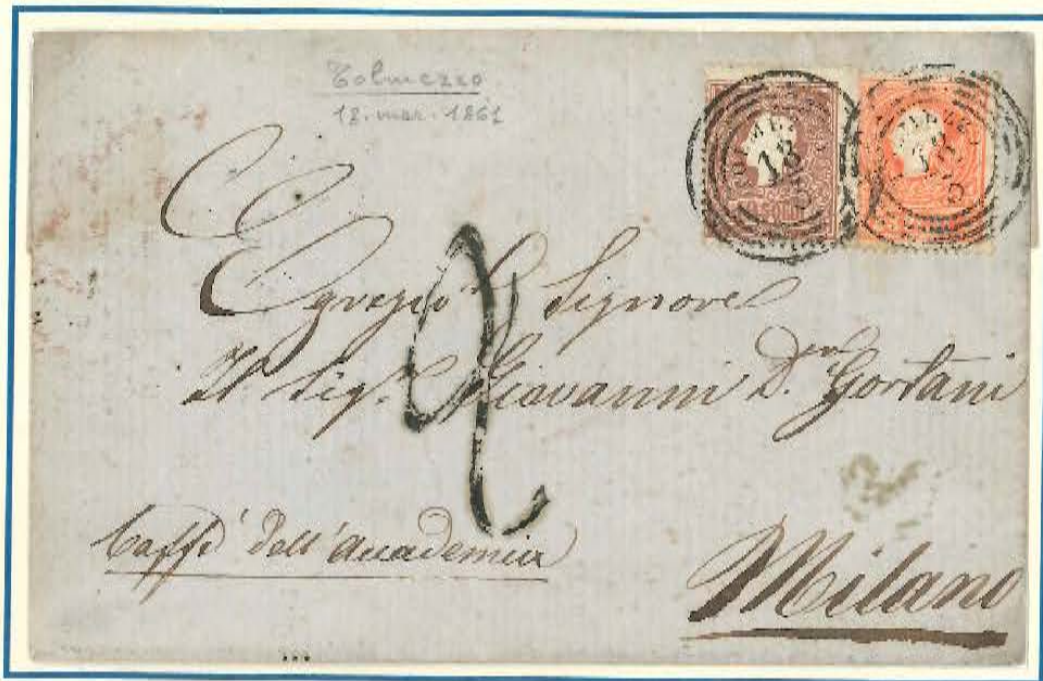 Tolmezzo
18. mar. 1861
18
Egregio Signore
Il Sigr. Giovanni Dr. Gortani
2
Caffè dell'Accademia
Milano